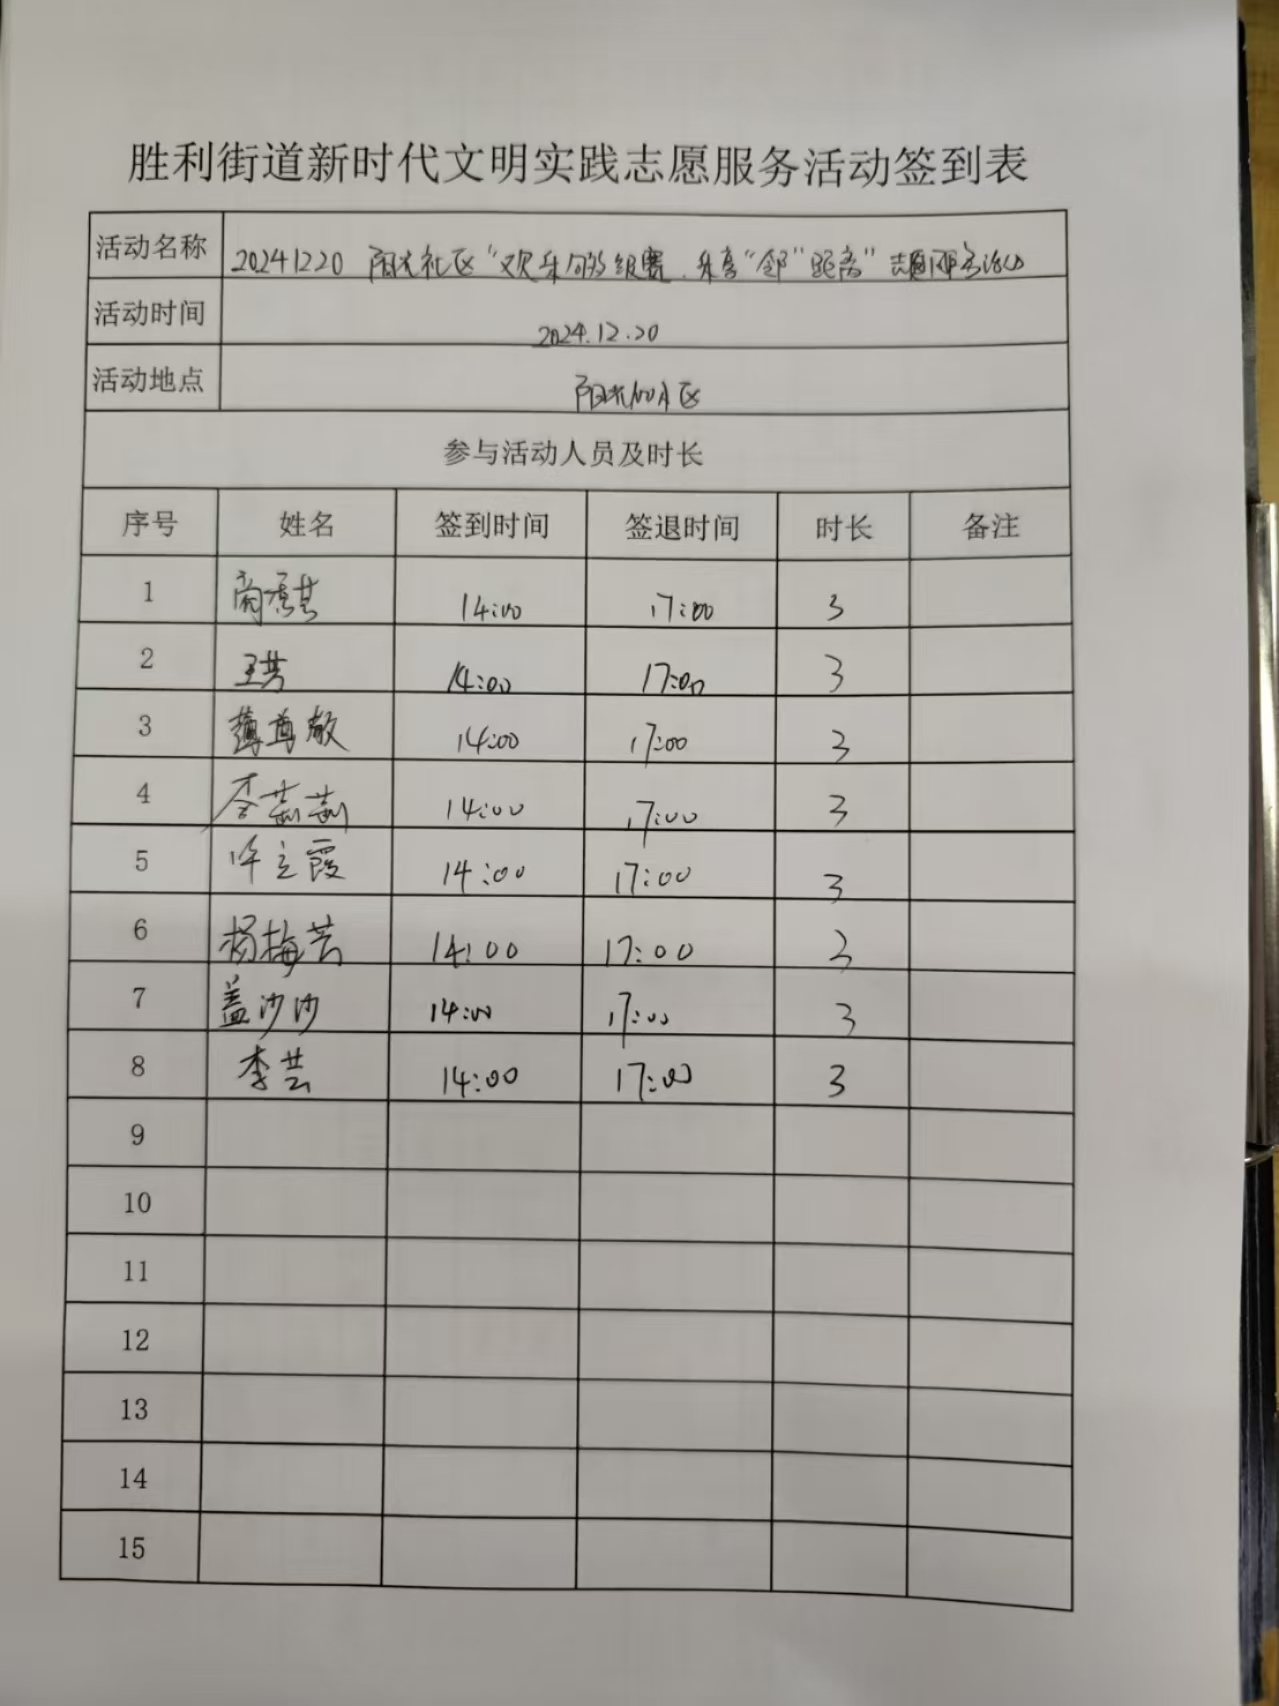 胜利街道新时代文明实践志愿服务活动签到表
活动名称 20241220 阳光社区“欢乐 级赛、乐享“邻”距离”志愿服务活动
活动时间 2024.12.20
活动地点 阳光 区
参与活动人员及时长
序号 姓名 签到时间 签退时间 时长 备注
1 14:00 17:00 3
2 王芳 14:00 17:00 3
3 薄尊敬 14:00 17:00 3
4 李茹茹 14:00 17:00 3
5 许立霞 14:00 17:00 3
6 杨梅芸 14:00 17:00 3
7 盖沙沙 14:00 17:00 3
8 李芸 14:00 17:00 3
9
10
11
12
13
14
15